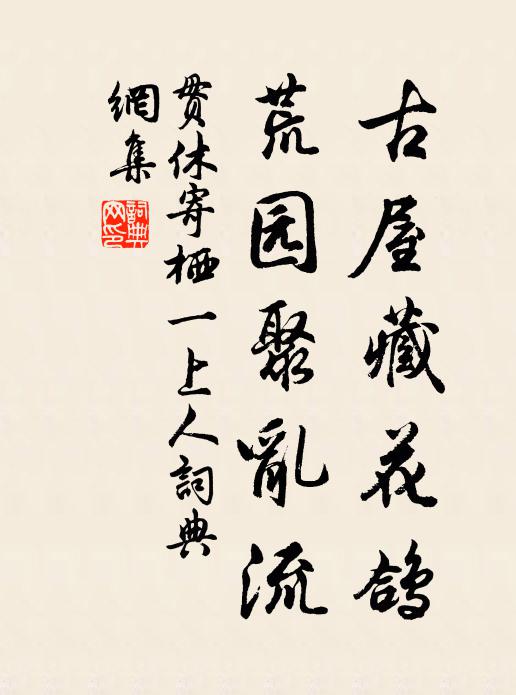 古屋藏花鸽
荒园聚亂流
贯休寄栖一上人詞典
網集
詞典
网印